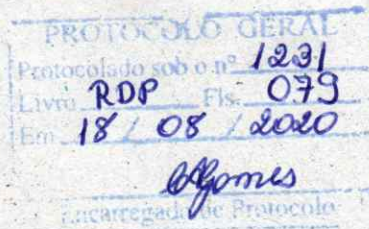 PROTOCOLO GERAL
Protocolado sob o nº 1231
Livro RDP Fls. 079
Em 18 / 08 / 2020
Gomes
Encarregado de Protocolo